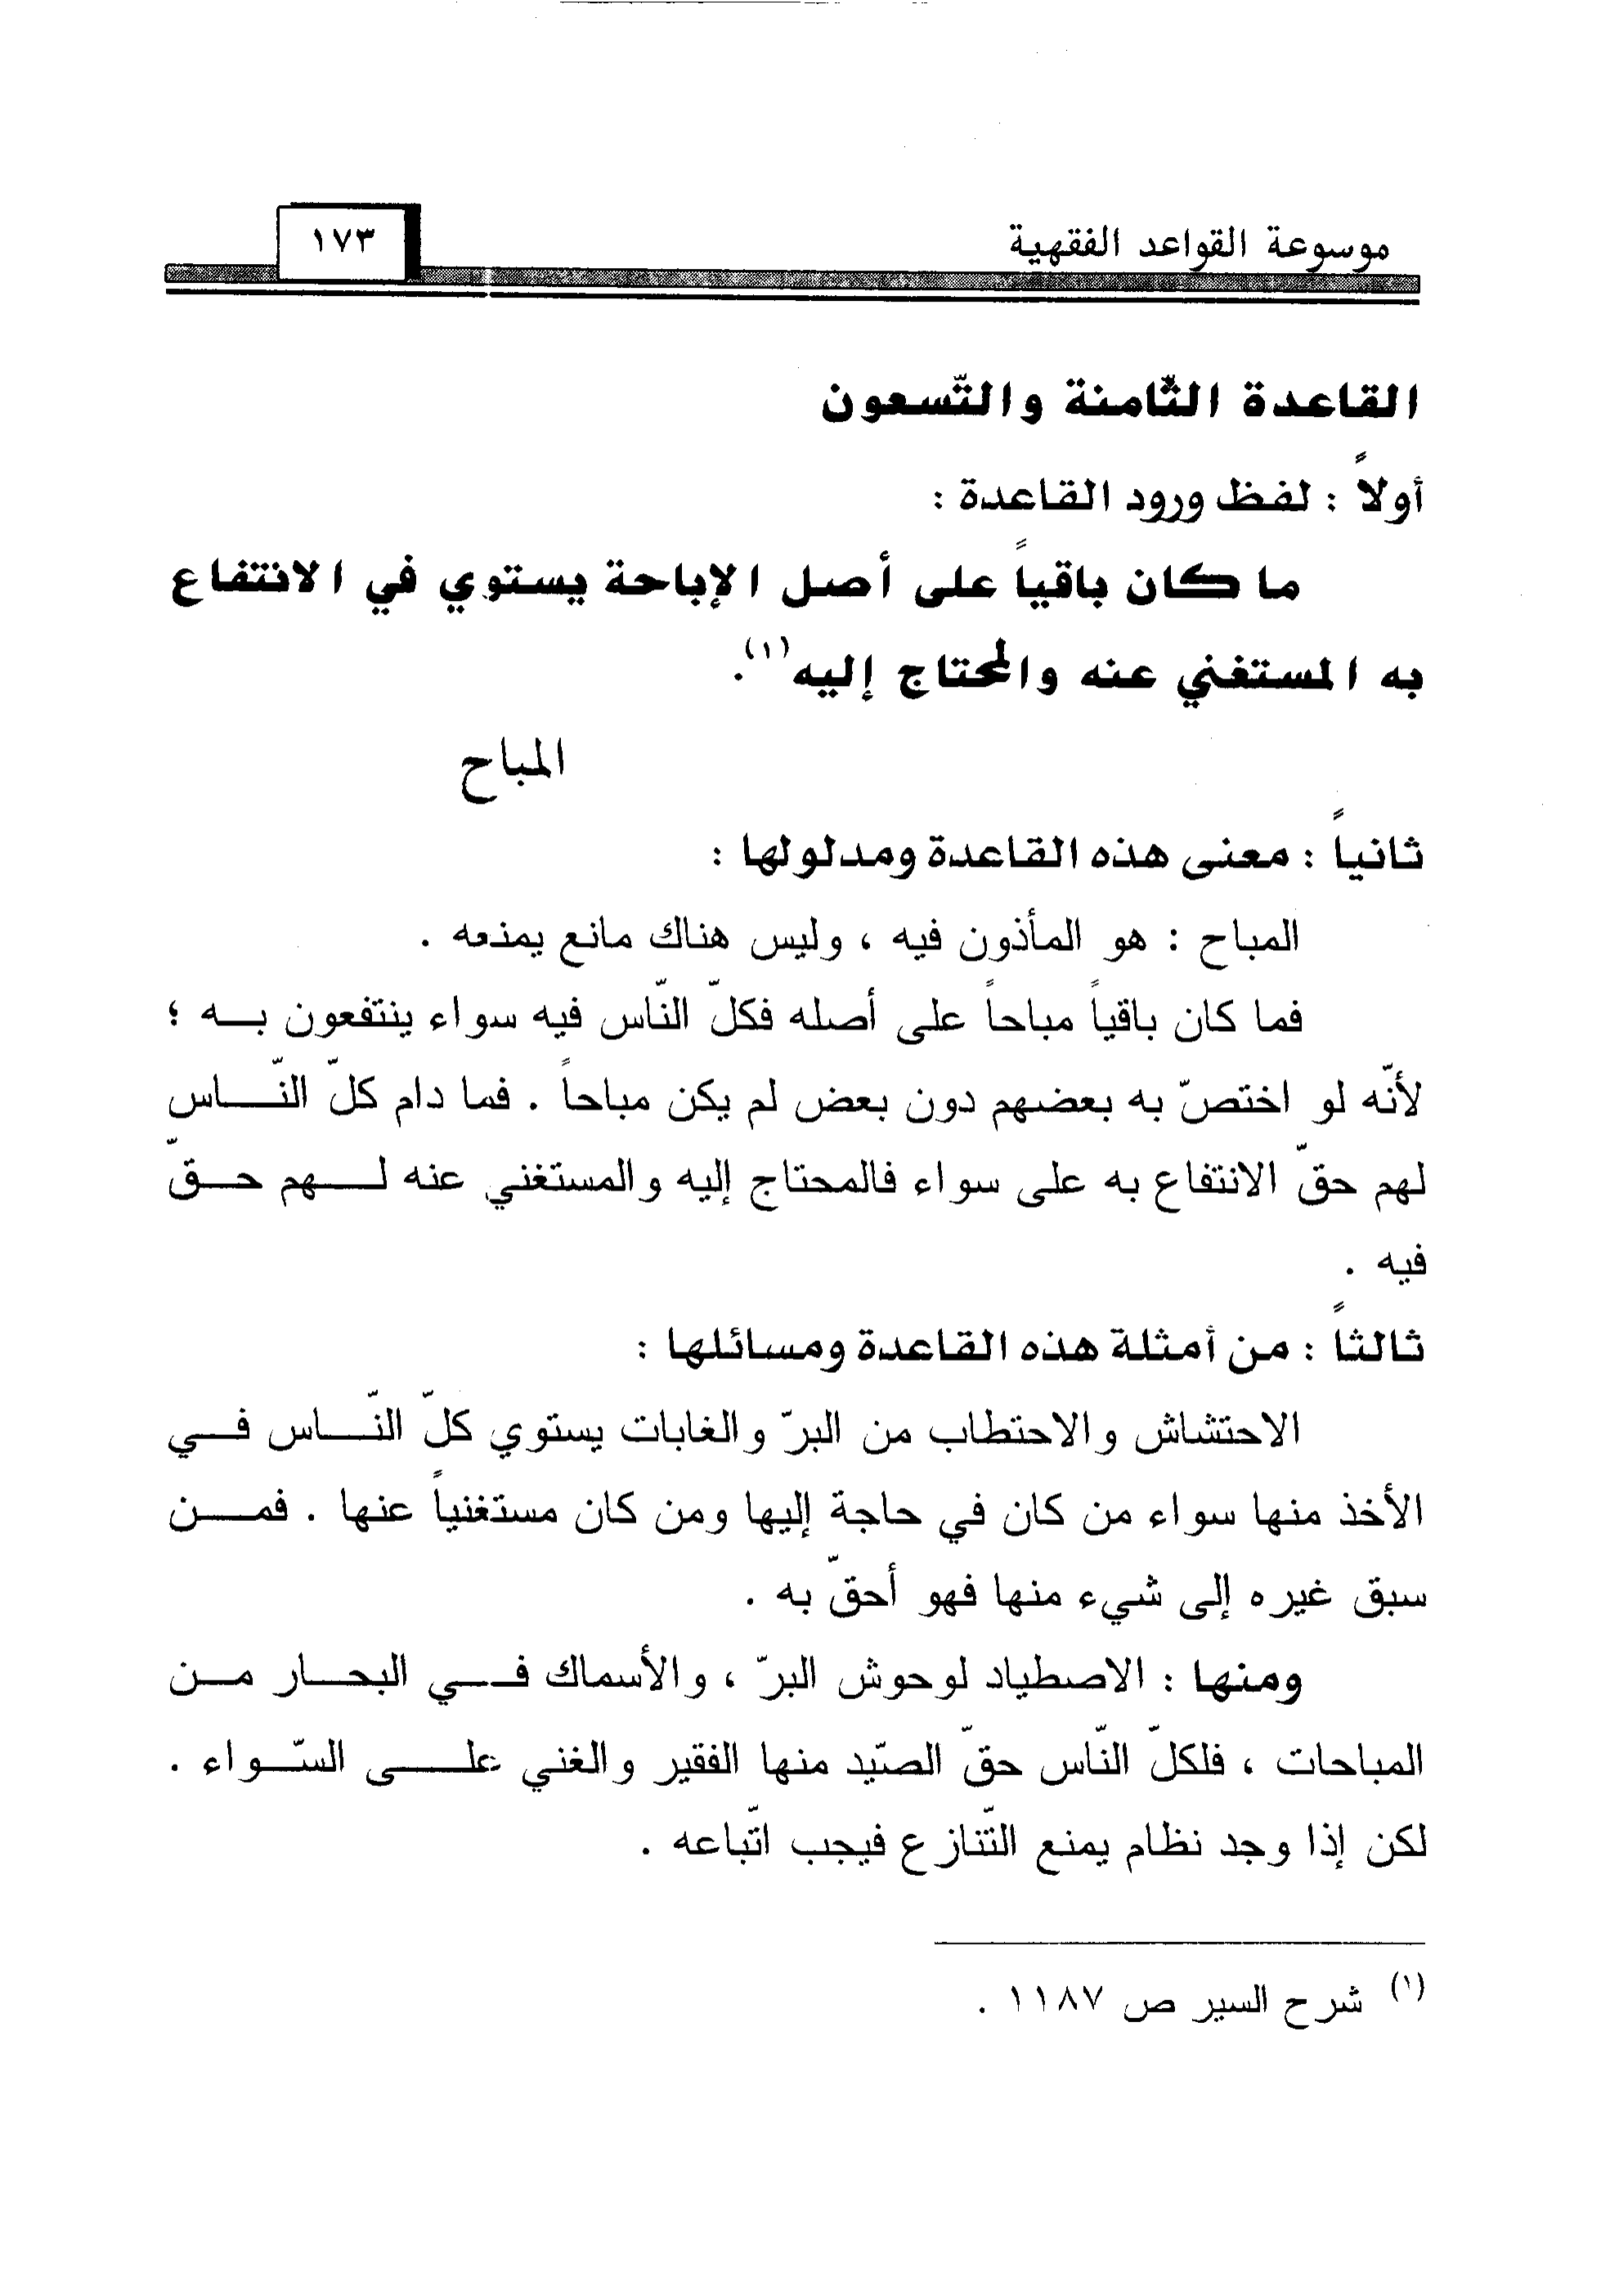 موسوعة القواعد الفقهية ١٧٣
القاعدة الثّامنة والتّسعون
أولاً : لفظ ورود القاعدة :
ما كان باقياً على أصل الإباحة يستوي في الانتفاع
به المستغني عنه والمحتاج إليه(١).
المباح
ثانياً : معنى هذه القاعدة ومدلولها :
المباح : هو المأذون فيه ، وليس هناك مانع يمنعه .
فما كان باقياً مباحاً على أصله فكلّ النّاس فيه سواء ينتفعون بـه ؛
لأنّه لو اختصّ به بعضهم دون بعض لم يكن مباحاً . فما دام كلّ النّـاس
لهم حقّ الانتفاع به على سواء فالمحتاج إليه والمستغني عنه لـهم حـقّ
فيه .
ثالثاً : من أمثلة هذه القاعدة ومسائلها :
الاحتشاش والاحتطاب من البرّ والغابات يستوي كلّ النّـاس فـي
الأخذ منها سواء من كان في حاجة إليها ومن كان مستغنياً عنها . فمـن
سبق غيره إلى شيء منها فهو أحقّ به .
ومنها : الاصطياد لوحوش البرّ ، والأسماك فـي البحـار مـن
المباحات ، فلكلّ النّاس حقّ الصيّد منها الفقير والغني علـى السّـواء .
لكن إذا وجد نظام يمنع التّنازع فيجب اتّباعه .
(١) شرح السير ص ١١٨٧ .